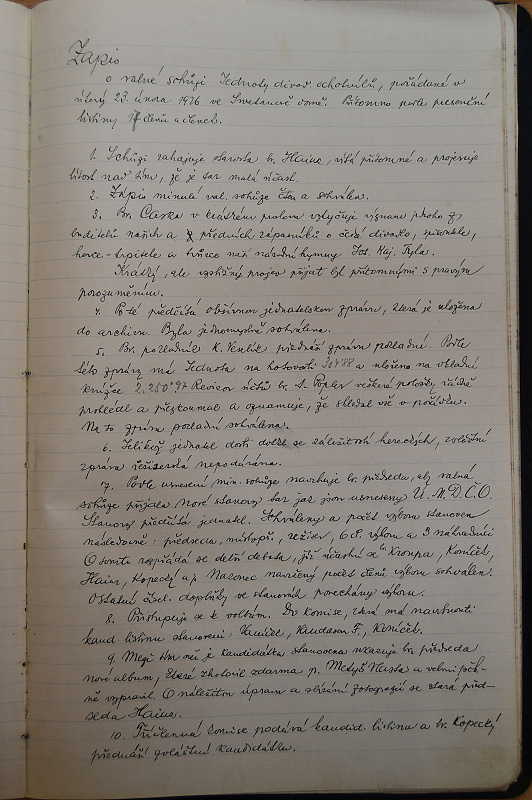 Zápis
o valné schůzi Jednoty divad. ochotníků, pořádané v
úterý 23. února 1926 ve Smetanově domě. Přítomno podle presenční
listiny 17 členů a členek.
1. Schůzi zahajuje starosta br. Hains, vítá přítomné a projevuje
lítost nad tím, že je tak malá účast.
2. Zápis minulé val. schůze čten a schválen.
3. Br. Cáska v krátkém proslovu vzpomíná význam jednoho z
buditelů našich a předních zápasníků o české divadlo, spisovatele,
herce-trpitele a tvůrce naší národní hymny Jos. Kaj. Tyla.
Krátký, ale vzletný projev přijat byl přítomnými s pravým
porozuměním.
4. Poté předčítá obšírnou jednatelskou zprávu, která je uložena
do archivu. Byla jednomyslně schválena.
5. Br. pokladník K. Veselík přednáší zprávu pokladní. Podle
této zprávy má Jednota na hotovosti a uloženo na vkladní
knížce 2.250.97 Revisor účtů br. A. Popler veškeré položky řádně
prohlédl a přezkoumal a oznamuje, že shledal vše v pořádku.
Na to zpráva pokladní schválena.
6. Jelikož jednatel dosti dotkl se záležitostí hereckých, zvláštní
zpráva režisérská nepodávána.
7. Podle usnesení min. schůze navrhuje br. předseda, aby valná
schůze přijala nové stanovy tak jak jsou usneseny Ú. M. D. Č. O.
Stanovy předčítá jednatel. Schváleny a počet výboru stanoven
následovně: předseda, místopř., režisér, 6 čl. výboru a 3 náhradníci
O tomto rozpřádá se delší debata, jíž účastní se Kroupa, Koníček,
Hains, Kopecký a j. Nakonec navržený počet členů výboru schválen.
Ostatní čísel. doplňky ve stanovách ponechány výboru.
8. Přistupuje se k volbám. Do komise, která má navrhnouti
kand. listinu stanoveni: Vaníček, Vondason F., Koníček.
9. Mezi tím než je kandidátka stanovena ukazuje br. předseda
nové album, které zhotovil zdarma p. Metyš Vlasta a velmi pěk-
ně vypravil. O náležitou úpravu a sbírání fotografií se stará před-
seda Hains.
10. Tříčlenná komise podává kandid. listinu a br. Kopecký
přednáší zvláštní kandidátku.